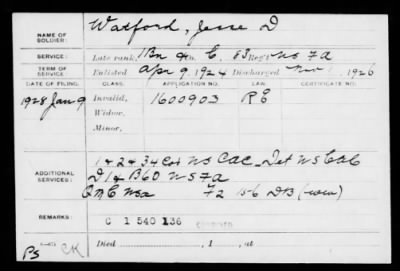 NAME OF SOLDIER: Watford, Jesse D
SERVICE: Late rank, Bn C, 83 Reg't US FA
TERM OF SERVICE: Enlisted Apr 9, 1924 Discharged Nov 1, 1926
DATE OF FILING. CLASS. APPLICATION NO. LAW. CERTIFICATE NO.
1928 Jan 9 Invalid, 1600903 RE
Widow,
Minor,
1 & 2 & 34 Cos US CAC Det US CAC
ADDITIONAL SERVICES: D 1 & B 60 US FA
QMC USA
REMARKS: C 1 540 136
Died , 1 , at
PS CK